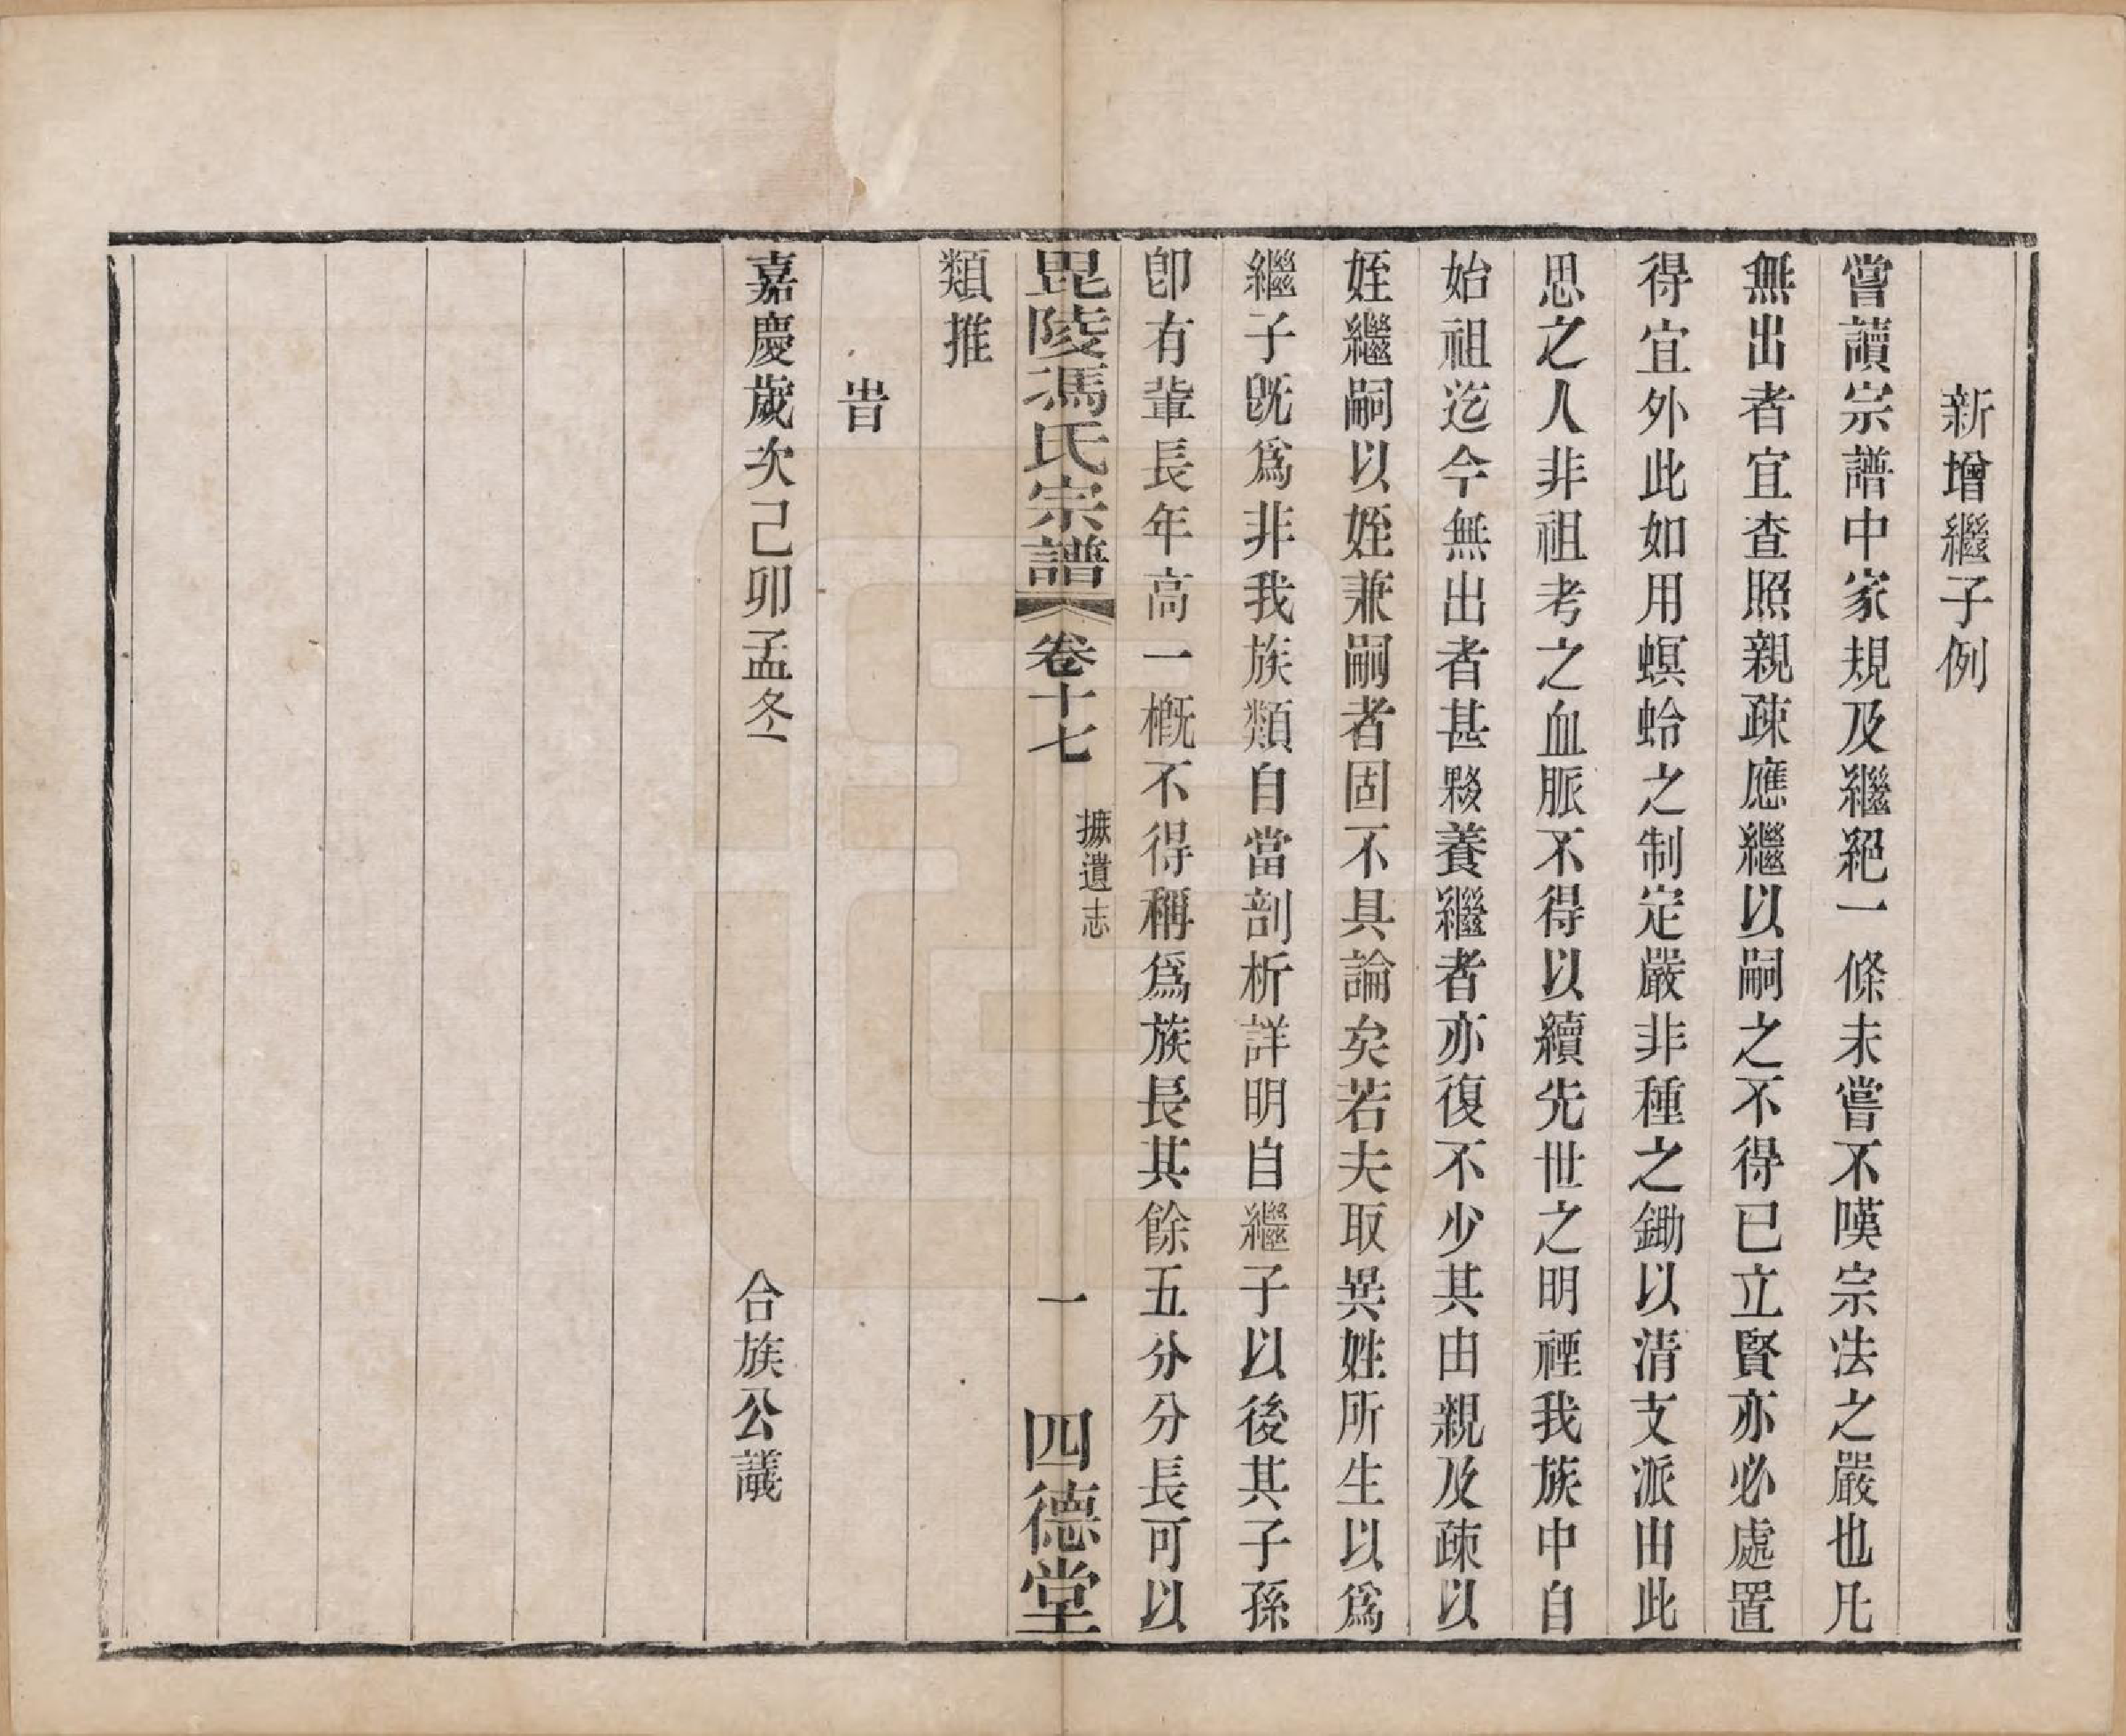 新增繼子例
嘗讀宗譜中家規及繼絕一條未嘗不嘆宗法之嚴也凡
無出者宜查照親疎應繼以嗣之不得已立賢亦必處置
得宜外此如用螟蛉之制定嚴非種之鋤以清支派由此
思之人非祖考之血脈不得以續先世之明禋我族中自
始祖迄今無出者甚夥養繼者亦復不少其由親及疎以
姪繼嗣以姪兼嗣者固不具論矣若夫取異姓所生以爲
繼子旣爲非我族類自當剖析詳明自繼子以後其子孫
卽有輩長年高一槪不得稱爲族長其餘五分分長可以
毘陵馮氏宗譜 卷十七 摭遺志 一 四德堂
類推
旹
嘉慶歲次己卯孟冬 合族公議